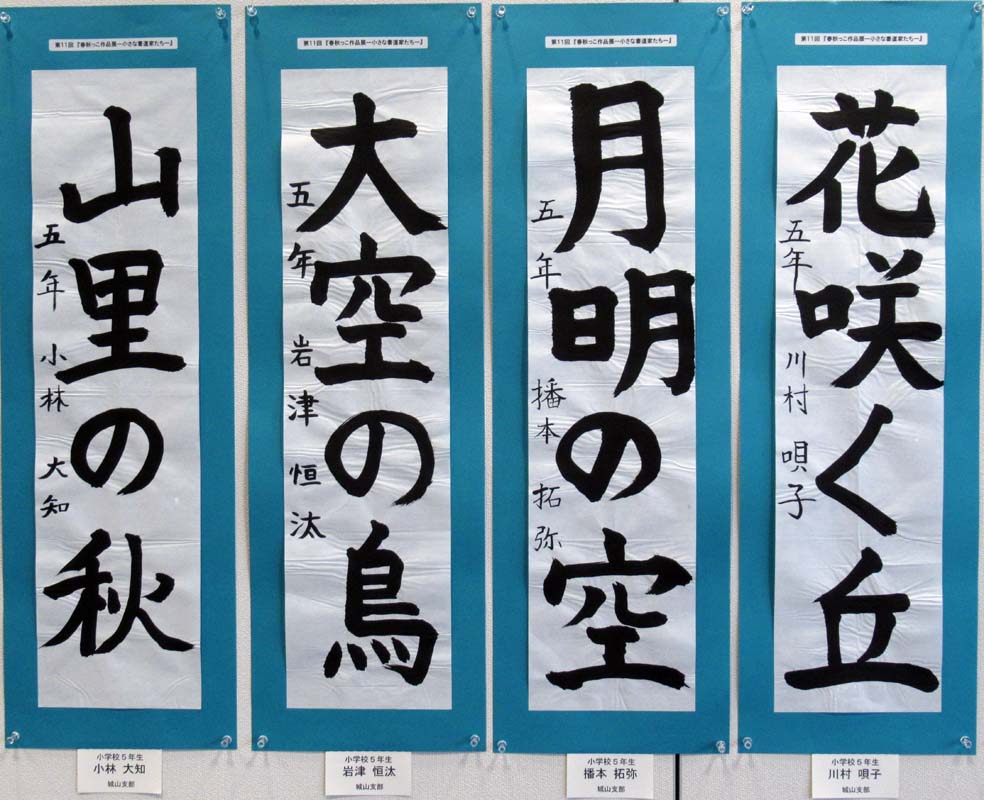 第11回『春秋っこ作品展ー小さな書道家たちー』
花咲く丘
五年 川村 唄子
小学校5年生
川村 唄子
城山支部
第11回『春秋っこ作品展ー小さな書道家たちー』
月明の空
五年 播本 拓弥
小学校5年生
播本 拓弥
城山支部
第11回『春秋っこ作品展ー小さな書道家たちー』
大空の鳥
五年 岩津 恒汰
小学校5年生
岩津 恒汰
城山支部
第11回『春秋っこ作品展ー小さな書道家たちー』
山里の秋
五年 小林 大知
小学校5年生
小林 大知
城山支部